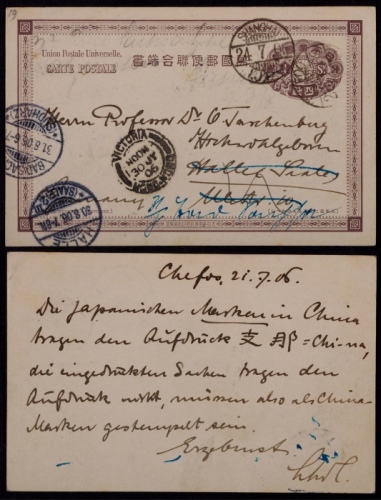 19
SHANGHAI
24 7
Union Postale Universelle.
CARTE POSTALE
書端合聯便郵國萬
Herrn Professor Dr O Taschenberg
VICTORIA
NOON
06
BAD SACHSA
(SÜDHARZ)
31.8.06.
HALLE
(SAALE) 2
30.8.06. 7-8N.
Halle Saale
Germany
Chefoo, 21.7.06.
Die Japanischen Marken in China
tragen den Aufdruck 支那 = Chi-na,
die eingedruckten Sachen tragen den
Aufdruck nicht, müssen also als China-
Marken gestempelt sein.
Ergebenst